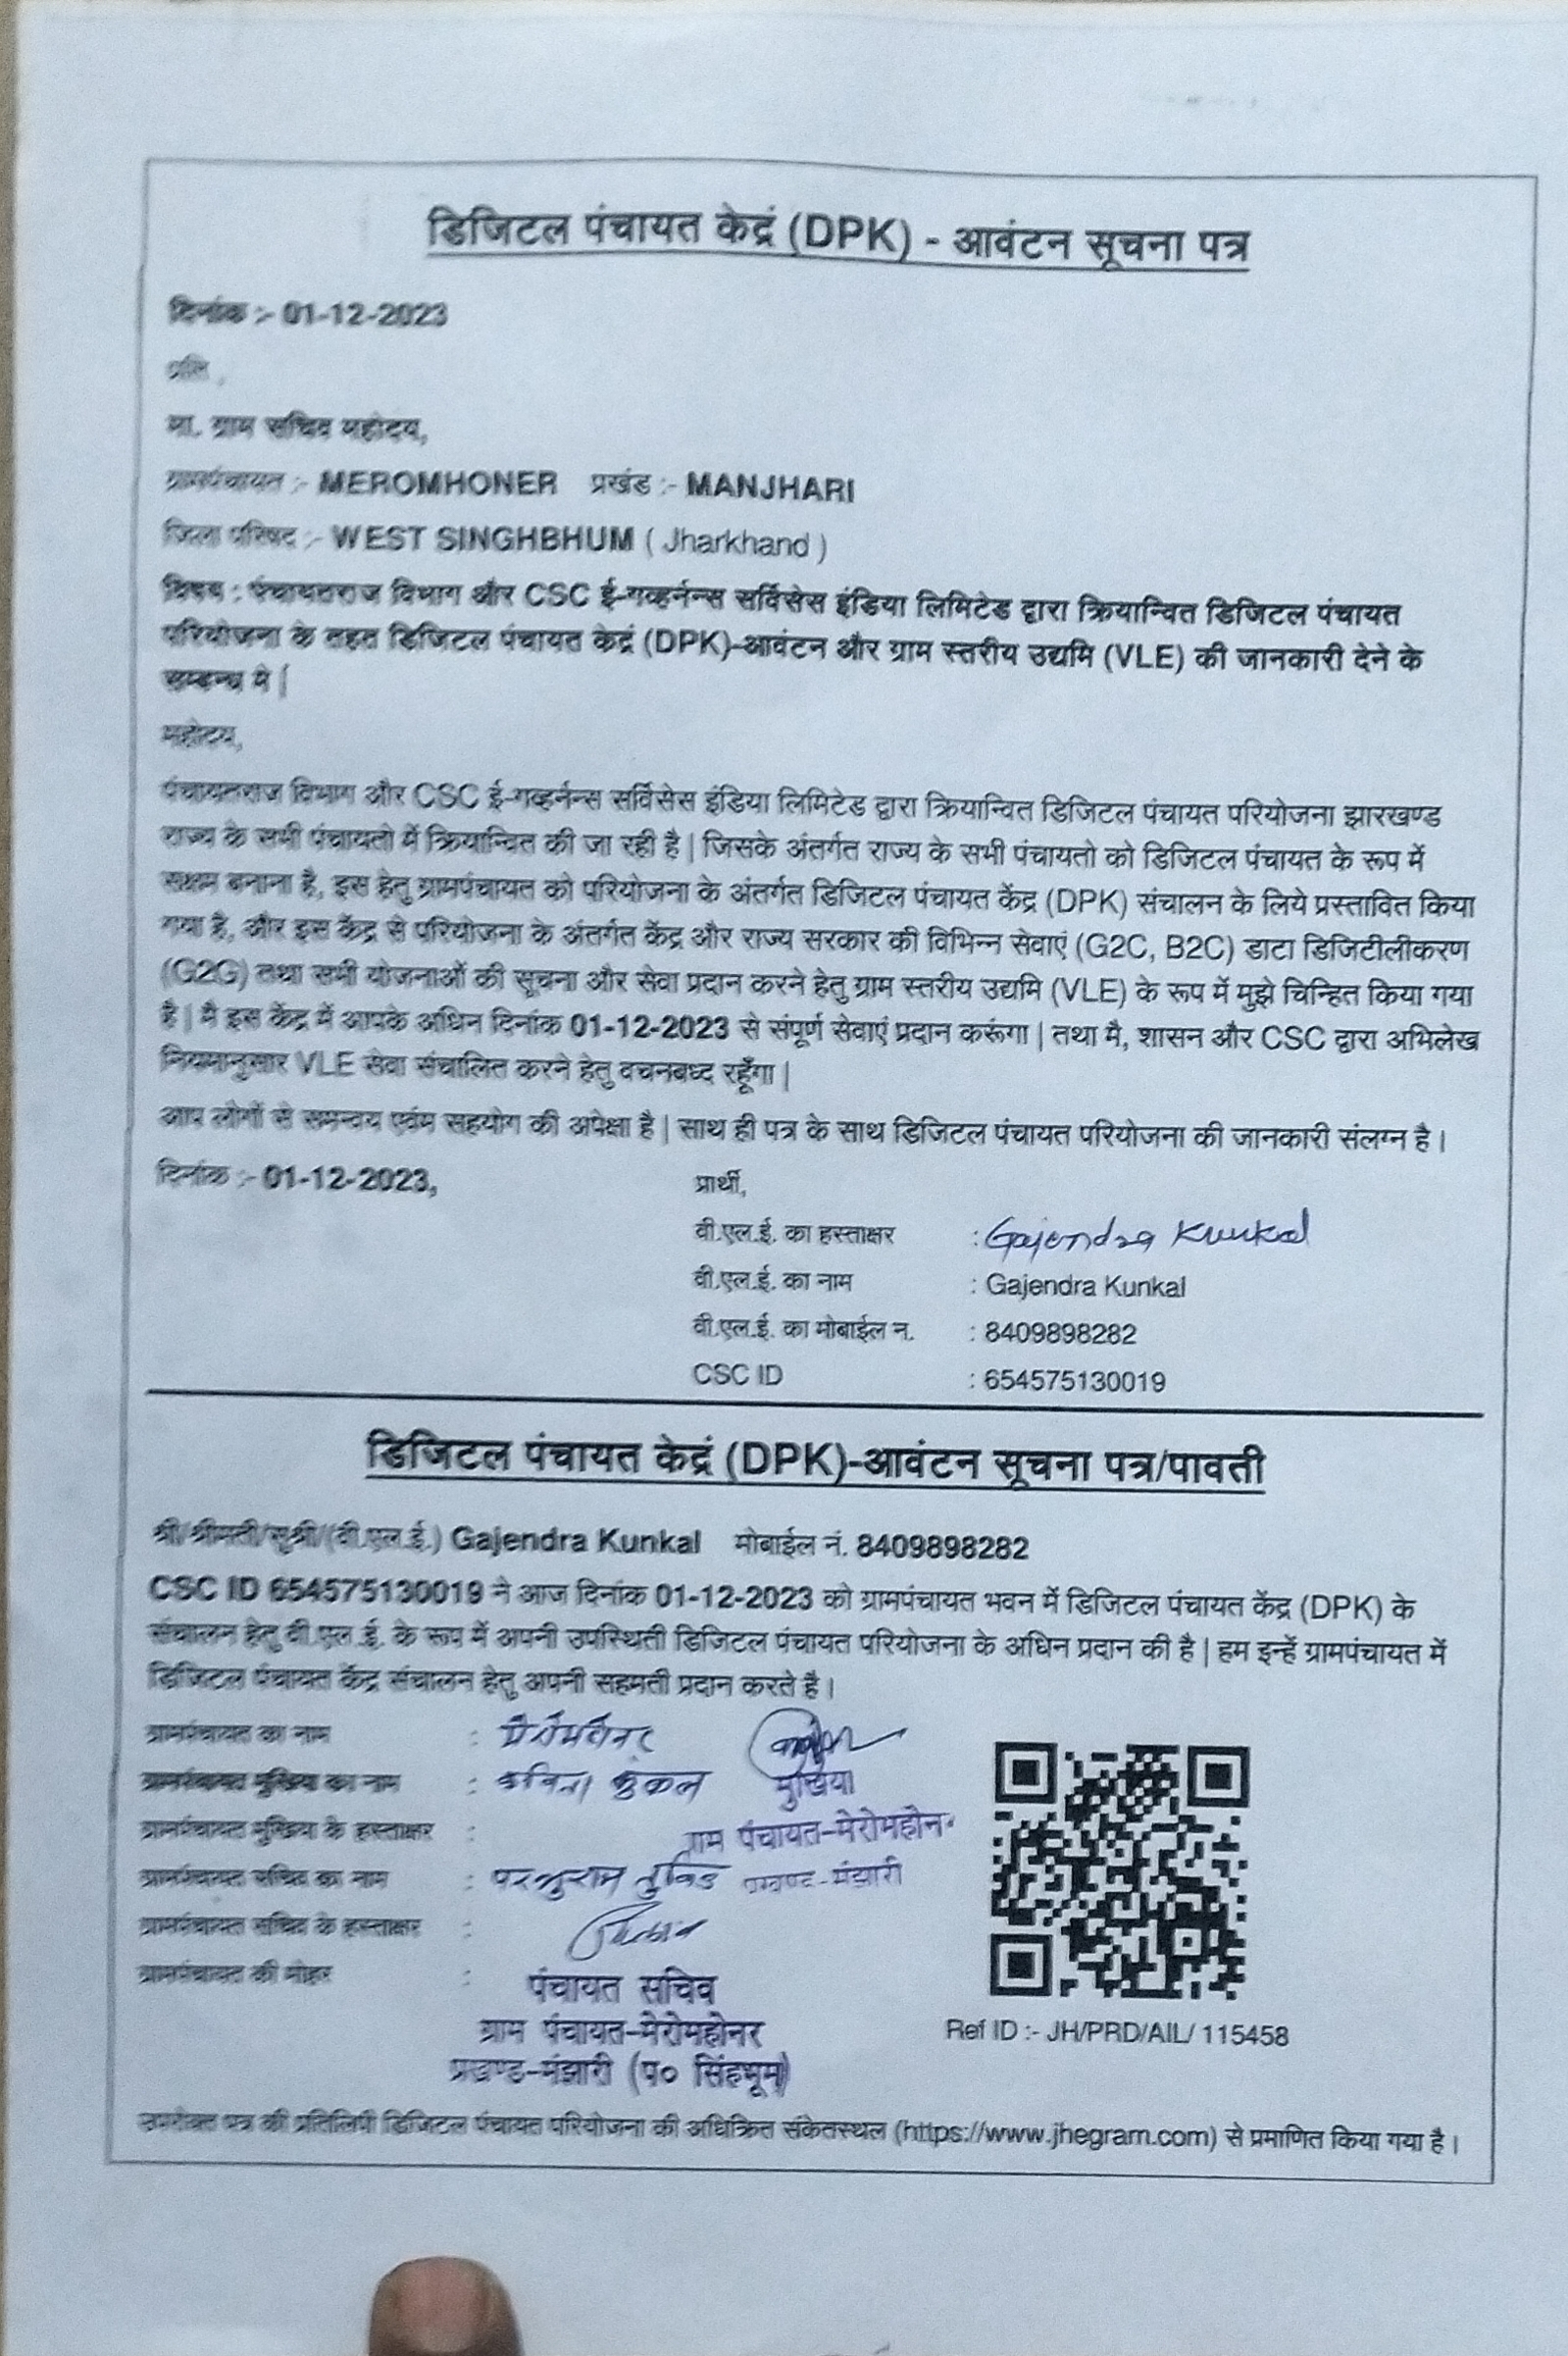 डिजिटल पंचायत केद्रं (DPK) - आवंटन सूचना पत्र
दिनांक :- 01-12-2023
प्रति ,
मा. ग्राम सचिव महोदय,
ग्रामपंचायत :- MEROMHONER प्रखंड :- MANJHARI
जिला परिषद :- WEST SINGHBHUM ( Jharkhand )
विषय : पंचायतराज विभाग और CSC ई-गव्हर्नन्स सर्विसेस इंडिया लिमिटेड द्वारा क्रियान्वित डिजिटल पंचायत
परियोजना के तहत डिजिटल पंचायत केद्रं (DPK)-आवंटन और ग्राम स्तरीय उद्यमि (VLE) की जानकारी देने के
सम्बन्ध मे |
महोदय,
पंचायतराज विभाग और CSC ई-गव्हर्नन्स सर्विसेस इंडिया लिमिटेड द्वारा क्रियान्वित डिजिटल पंचायत परियोजना झारखण्ड
राज्य के सभी पंचायतो में क्रियान्वित की जा रही है | जिसके अंतर्गत राज्य के सभी पंचायतो को डिजिटल पंचायत के रूप में
सक्षम बनाना है, इस हेतु ग्रामपंचायत को परियोजना के अंतर्गत डिजिटल पंचायत केंद्र (DPK) संचालन के लिये प्रस्तावित किया
गया है, और इस केंद्र से परियोजना के अंतर्गत केंद्र और राज्य सरकार की विभिन्न सेवाएं (G2C, B2C) डाटा डिजिटीलीकरण
(G2G) तथा सभी योजनाओं की सूचना और सेवा प्रदान करने हेतु ग्राम स्तरीय उद्यमि (VLE) के रूप में मुझे चिन्हित किया गया
है | मै इस केंद्र में आपके अधिन दिनांक 01-12-2023 से संपूर्ण सेवाएं प्रदान करूंगा | तथा मै, शासन और CSC द्वारा अभिलेख
नियमानुसार VLE सेवा संचालित करने हेतु वचनबध्द रहूँगा |
आप लोगों से समन्वय एवंम सहयोग की अपेक्षा है | साथ ही पत्र के साथ डिजिटल पंचायत परियोजना की जानकारी संलग्न है ।
दिनांक :- 01-12-2023, प्रार्थी,
वी.एल.ई. का हस्ताक्षर : Gajendra Kunkal
वी.एल.ई. का नाम : Gajendra Kunkal
वी.एल.ई. का मोबाईल न. : 8409898282
CSC ID : 654575130019
डिजिटल पंचायत केद्रं (DPK)-आवंटन सूचना पत्र/पावती
श्री/श्रीमती/सुश्री/(वी.एल.ई.) Gajendra Kunkal मोबाईल नं. 8409898282
CSC ID 654575130019 ने आज दिनांक 01-12-2023 को ग्रामपंचायत भवन में डिजिटल पंचायत केंद्र (DPK) के
संचालन हेतु वी.एल.ई. के रूप में अपनी उपस्थिती डिजिटल पंचायत परियोजना के अधिन प्रदान की है | हम इन्हें ग्रामपंचायत में
डिजिटल पंचायत केंद्र संचालन हेतु अपनी सहमती प्रदान करते है ।
ग्रामपंचायत का नाम : मेरोमहोनर
ग्रामपंचायत मुखिया का नाम : कविता कुंकल मुखिया
ग्रामपंचायत मुखिया के हस्ताक्षर : ग्राम पंचायत-मेरोमहोनर
ग्रामपंचायत सचिव का नाम : परशुराम तुबिड प्रखण्ड-मंझारी
ग्रामपंचायत सचिव के हस्ताक्षर :
ग्रामपंचायत की मोहर : पंचायत सचिव
ग्राम पंचायत-मेरोमहोनर
प्रखण्ड-मंझारी (प० सिंहभूम)
Ref ID :- JH/PRD/AIL/ 115458
उपरोक्त पत्र की प्रतिलिपी डिजिटल पंचायत परियोजना की अधिक्रित संकेतस्थल (https://www.jhegram.com) से प्रमाणित किया गया है ।